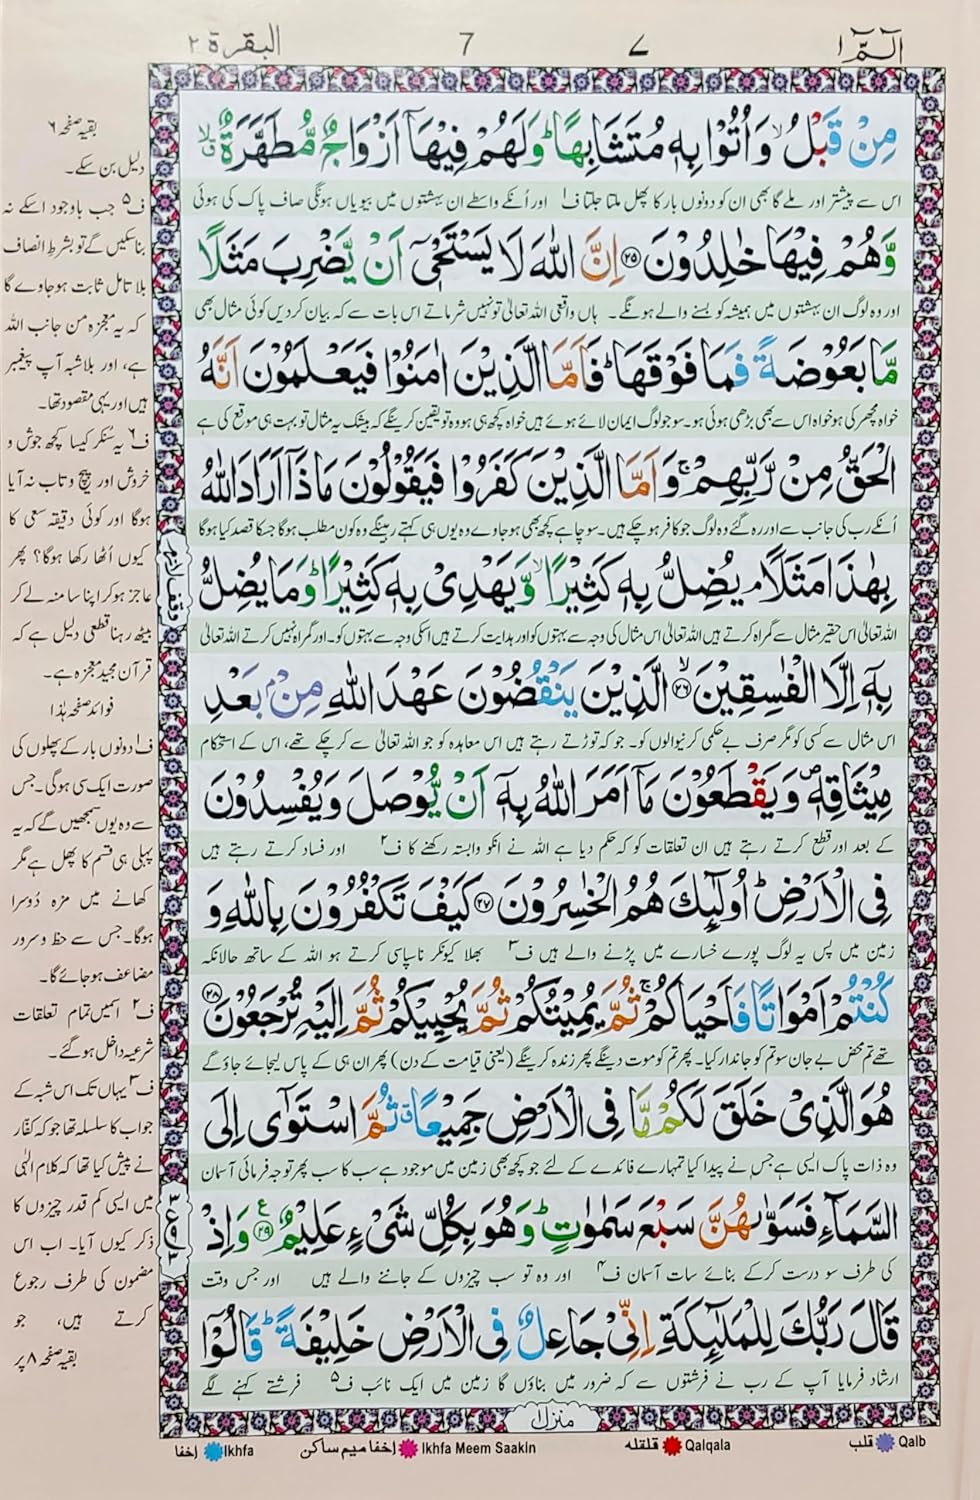 الٓمّٓ ١
٧
7
البقرة ٢
مِنْ قَبْلُ ۙ وَاُتُوْا بِهٖ مُتَشَابِهًا ؕ وَلَهُمْ فِيْهَآ اَزْوَاجٌ مُّطَهَّرَةٌ ۙۗ
اس سے پیشتر اور ملے گا بھی ان کو دونوں بار کا پھل ملتا جلتا ف۱ اور اُنکے واسطے ان بہشتوں میں بیویاں ہونگی صاف پاک کی ہوئی
وَّهُمْ فِيْهَا خٰلِدُوْنَ ۝۲۵ اِنَّ اللّٰهَ لَا يَسْتَحْیٖۤ اَنْ يَّضْرِبَ مَثَلًا
اور وہ لوگ ان بہشتوں میں ہمیشہ کو بسنے والے ہونگے۔ ہاں واقعی اللہ تعالیٰ تو نہیں شرماتے اس بات سے کہ بیان کردیں کوئی مثال بھی
مَّا بَعُوْضَةً فَمَا فَوْقَهَا ؕ فَاَمَّا الَّذِيْنَ اٰمَنُوْا فَيَعْلَمُوْنَ اَنَّهُ
خواہ مچھر کی ہو خواہ اس سے بھی بڑھی ہوئی ہو۔ سو جو لوگ ایمان لائے ہوئے ہیں خواہ کچھ ہی ہو وہ تو یقین کرینگے کہ بیشک یہ مثال تو بہت ہی موقع کی ہے
الْحَقُّ مِنْ رَّبِّهِمْ ۚ وَاَمَّا الَّذِيْنَ كَفَرُوْا فَيَقُوْلُوْنَ مَاذَآ اَرَادَ اللّٰهُ
اُنکے رب کی جانب سے اور رہ گئے وہ لوگ جو کافر ہوچکے ہیں۔ سو چاہے کچھ بھی ہوجاوے وہ یوں ہی کہتے رہینگے وہ کون مطلب ہوگا جسکا قصد کیا ہوگا
بِهٰذَا مَثَلًا ۘ يُضِلُّ بِهٖ كَثِيْرًا ۙ وَّيَهْدِیْ بِهٖ كَثِيْرًا ؕ وَمَا يُضِلُّ
اللہ تعالیٰ اس حقیر مثال سے گمراہ کرتے ہیں اللہ تعالیٰ اس مثال کی وجہ سے بہتوں کو اور ہدایت کرتے ہیں اسکی وجہ سے بہتوں کو۔ اور گمراہ نہیں کرتے اللہ تعالیٰ
بِهٖۤ اِلَّا الْفٰسِقِيْنَ ۙ۝۲۶ الَّذِيْنَ يَنْقُضُوْنَ عَهْدَ اللّٰهِ مِنْۢ بَعْدِ
اس مثال سے کسی کو مگر صرف بے حکمی کرنیوالوں کو۔ جو کہ توڑتے رہتے ہیں اس معاہدہ کو جو اللہ تعالیٰ سے کرچکے تھے، اس کے استحکام
مِيْثَاقِهٖ ۪ وَيَقْطَعُوْنَ مَآ اَمَرَ اللّٰهُ بِهٖۤ اَنْ يُّوْصَلَ وَيُفْسِدُوْنَ
کے بعد اور قطع کرتے رہتے ہیں ان تعلقات کو کہ حکم دیا ہے اللہ نے انکو وابستہ رکھنے کا ف۲ اور فساد کرتے رہتے ہیں
فِی الْاَرْضِ ؕ اُولٰٓئِكَ هُمُ الْخٰسِرُوْنَ ۝۲۷ كَيْفَ تَكْفُرُوْنَ بِاللّٰهِ وَ
زمین میں پس یہ لوگ پورے خسارے میں پڑنے والے ہیں ف۳ بھلا کیونکر ناسپاسی کرتے ہو اللہ کے ساتھ حالانکہ
كُنْتُمْ اَمْوَاتًا فَاَحْيَاكُمْ ۚ ثُمَّ يُمِيْتُكُمْ ثُمَّ يُحْيِيْكُمْ ثُمَّ اِلَيْهِ تُرْجَعُوْنَ ۝۲۸
تھے تم محض بے جان سو تم کو جاندار کیا۔ پھر تم کو موت دینگے پھر زندہ کرینگے (یعنی قیامت کے دن) پھر ان ہی کے پاس لیجائے جاؤ گے
هُوَ الَّذِیْ خَلَقَ لَكُمْ مَّا فِی الْاَرْضِ جَمِيْعًا ۗ ثُمَّ اسْتَوٰٓی اِلَی
وہ ذات پاک ایسی ہے جس نے پیدا کیا تمہارے فائدے کے لئے جو کچھ بھی زمین میں موجود ہے سب کا سب پھر توجہ فرمائی آسمان
السَّمَآءِ فَسَوّٰىهُنَّ سَبْعَ سَمٰوٰتٍ ؕ وَهُوَ بِكُلِّ شَیْءٍ عَلِيْمٌ ۝۲۹ ع وَاِذْ
کی طرف سو درست کرکے بنائے سات آسمان ف۴ اور وہ تو سب چیزوں کے جاننے والے ہیں اور جس وقت
قَالَ رَبُّكَ لِلْمَلٰٓئِكَةِ اِنِّیْ جَاعِلٌ فِی الْاَرْضِ خَلِيْفَةً ؕ قَالُوْٓا
ارشاد فرمایا آپ کے رب نے فرشتوں سے کہ ضرور میں بناؤں گا زمین میں ایک نائب ف۵ فرشتے کہنے لگے
منزل ۱
بقیہ صفحہ ۶
دلیل بن سکے۔
ف۵ جب باوجود اسکے نہ
بنا سکیں گے تو بشرط انصاف
بلا تامل ثابت ہوجاوے گا
کہ یہ معجزہ من جانب اللہ
ہے، اور بلاشبہ آپ پیغمبر
ہیں اور یہی مقصود تھا۔
ف۶ یہ سُنکر کیسا کچھ جوش و
خروش اور پیچ و تاب نہ آیا
ہوگا اور کوئی دقیقہ سعی کا
کیوں اُٹھا رکھا ہوگا؟ پھر
عاجز ہوکر اپنا سا منہ لے کر
بیٹھ رہنا قطعی دلیل ہے کہ
قرآن مجید معجزہ ہے۔
فوائد صفحہ ہذا
ف۱ دونوں بار کے پھلوں کی
صورت ایک سی ہوگی۔ جس
سے وہ یوں سمجھیں گے کہ یہ
پہلی ہی قسم کا پھل ہے مگر
کھانے میں مزہ دُوسرا
ہوگا۔ جس سے حظ و سرور
مضاعف ہوجائے گا۔
ف۲ اسمیں تمام تعلقات
شرعیہ داخل ہوگئے۔
ف۳ یہاں تک اس شبہ کے
جواب کا سلسلہ تھا جو کہ کفّار
نے پیش کیا تھا کہ کلام الٰہی
میں ایسی کم قدر چیزوں کا
ذکر کیوں آیا۔ اب اس
مضمون کی طرف رجوع
کرتے ہیں، جو
بقیہ صفحہ ۸ پر
قلب Qalb
قلقلہ Qalqala
إخفا میم ساکن Ikhfa Meem Saakin
إخفا Ikhfa